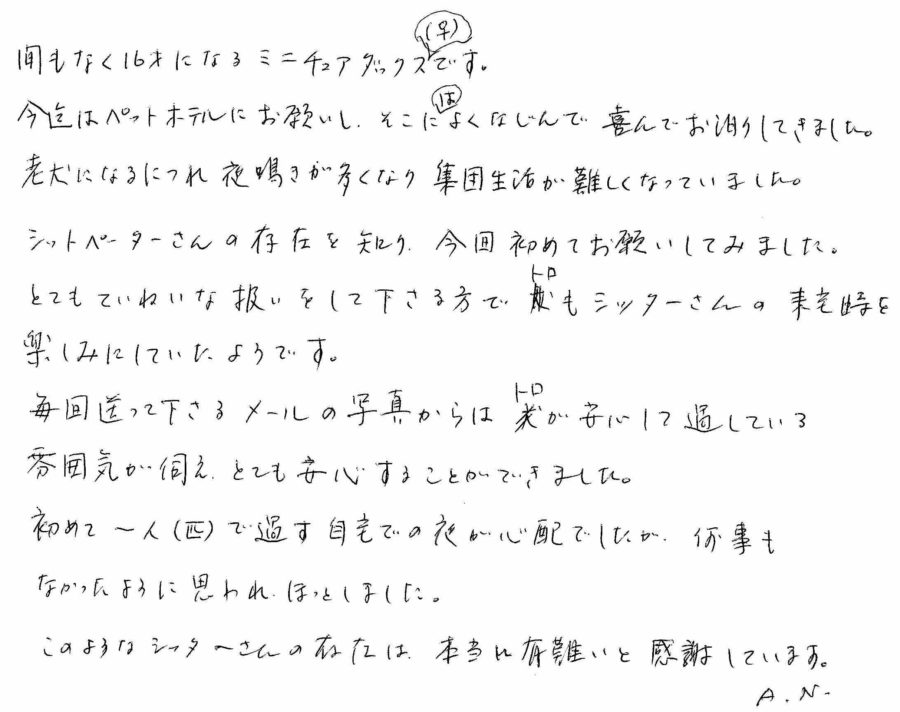 間もなく16才になるミニチュアダックス(♀)です。
今迄はペットホテルにお願いし、そこにはよくなじんで 喜んでお泊りしてきました。
老犬になるにつれ 夜鳴きが多くなり 集団生活が難しくなっていました。
シットペーターさんの存在を知り、今回初めてお願いしてみました。
とてもていねいな扱いをして下さる方で トロも シッターさんの 来宅時を
楽しみにしていたようです。
毎回送って下さるメールの写真からは トロが 安心して過している
雰囲気が伺え、とても安心することができました。
初めて一人(匹)で過す自宅での夜が心配でしたが、何事も
なかったように思われ、ほっとしました。
このようなシッターさんの存在は、本当に有難いと感謝しています。
A.N.